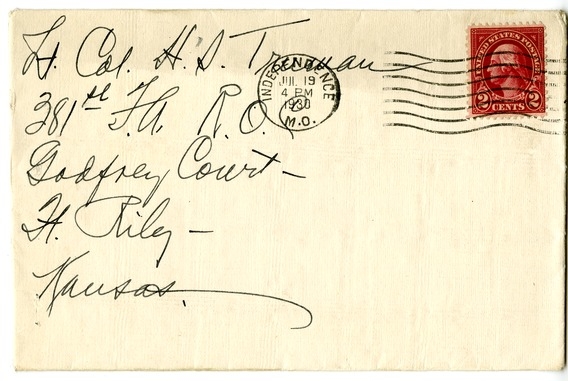 Lt. Col. H. S. Truman
381st F.A. R.O.
Godfrey Court —
Ft. Riley —
Kansas.
INDEPENDENCE
JUL 19
4 PM
1930
M.O.
UNITED STATES POSTAGE
2 CENTS 2